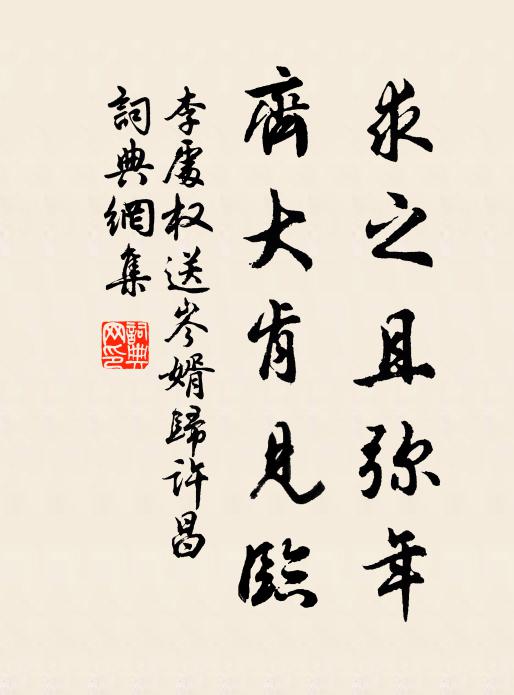 求之且弥年
齊大肯見臨
李處权送岑婿歸许昌
詞典網集
詞典网印